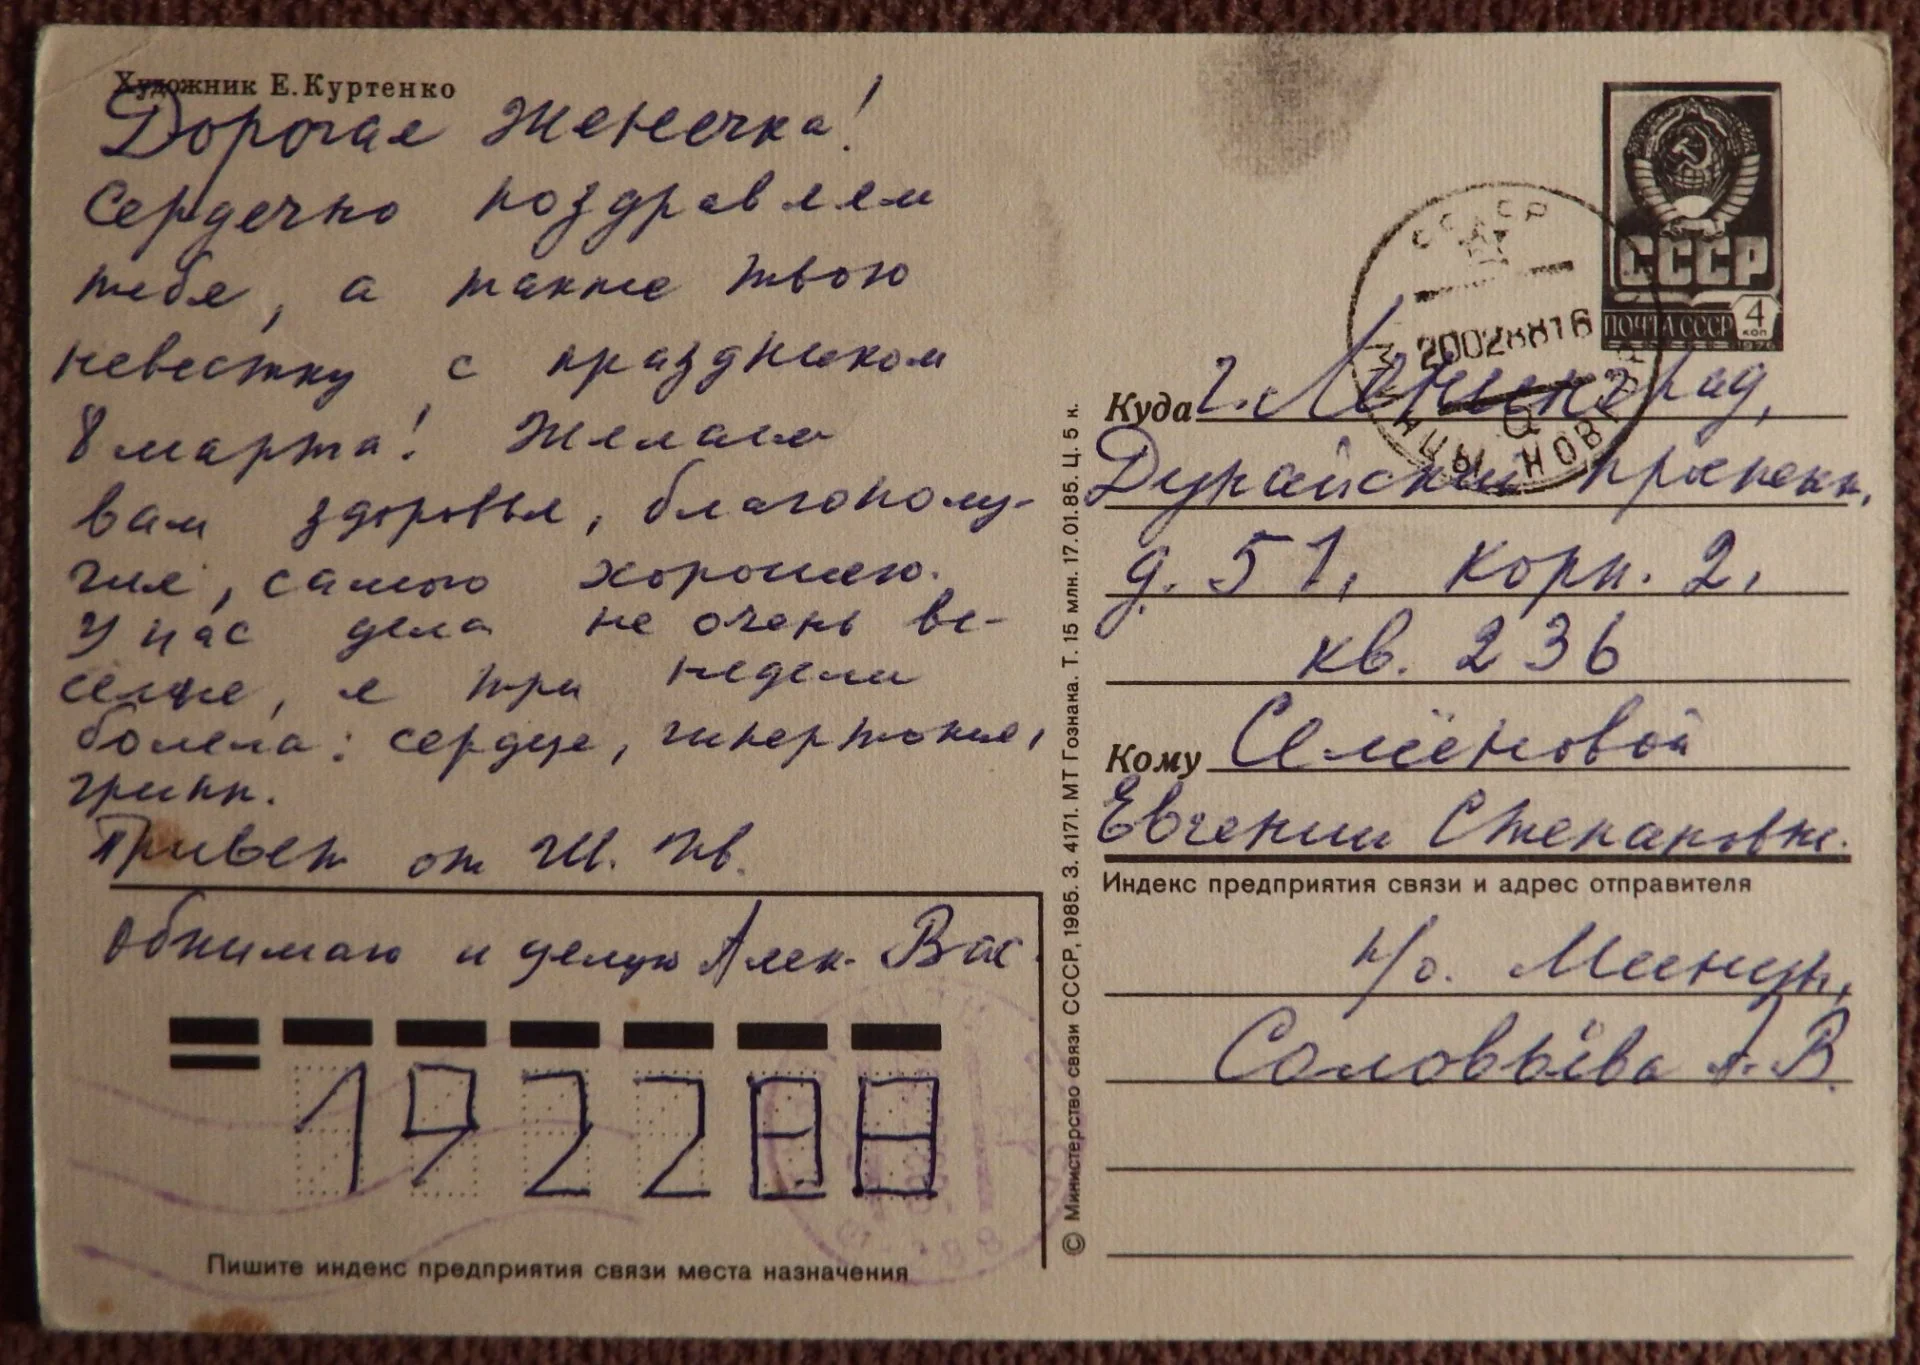 Художник Е.Куртенко
Дорогая Женечка!
Сердечно поздравляем
тебя, а также твою
невестку с праздником
8 марта! Желаем
вам здоровья, благополу-
чия, самою хорошею.
У нас дела не очень ве-
селые, я три недели
болела: сердце, гипертония,
грипп.
Привет от
Обнимаю и целую Алек. Вас.
192288
Пишите индекс предприятия связи места назначения
© Министерство связи СССР, 1985. З. 4171. МТ Гознака. Т. 15 млн. 17.01.85. Ц. 5 к.
СССР
ПОЧТА СССР 4 коп
1976
СССР
20028816
МИНЦЫ НОВГОР
Куда г. Ленинград,
Дунайский проспект,
д. 51, корп. 2,
кв. 236
Кому Семёновой
Евгении Степановне.
Индекс предприятия связи и адрес отправителя
п/о. Минцы,
Соловьёва А. В.